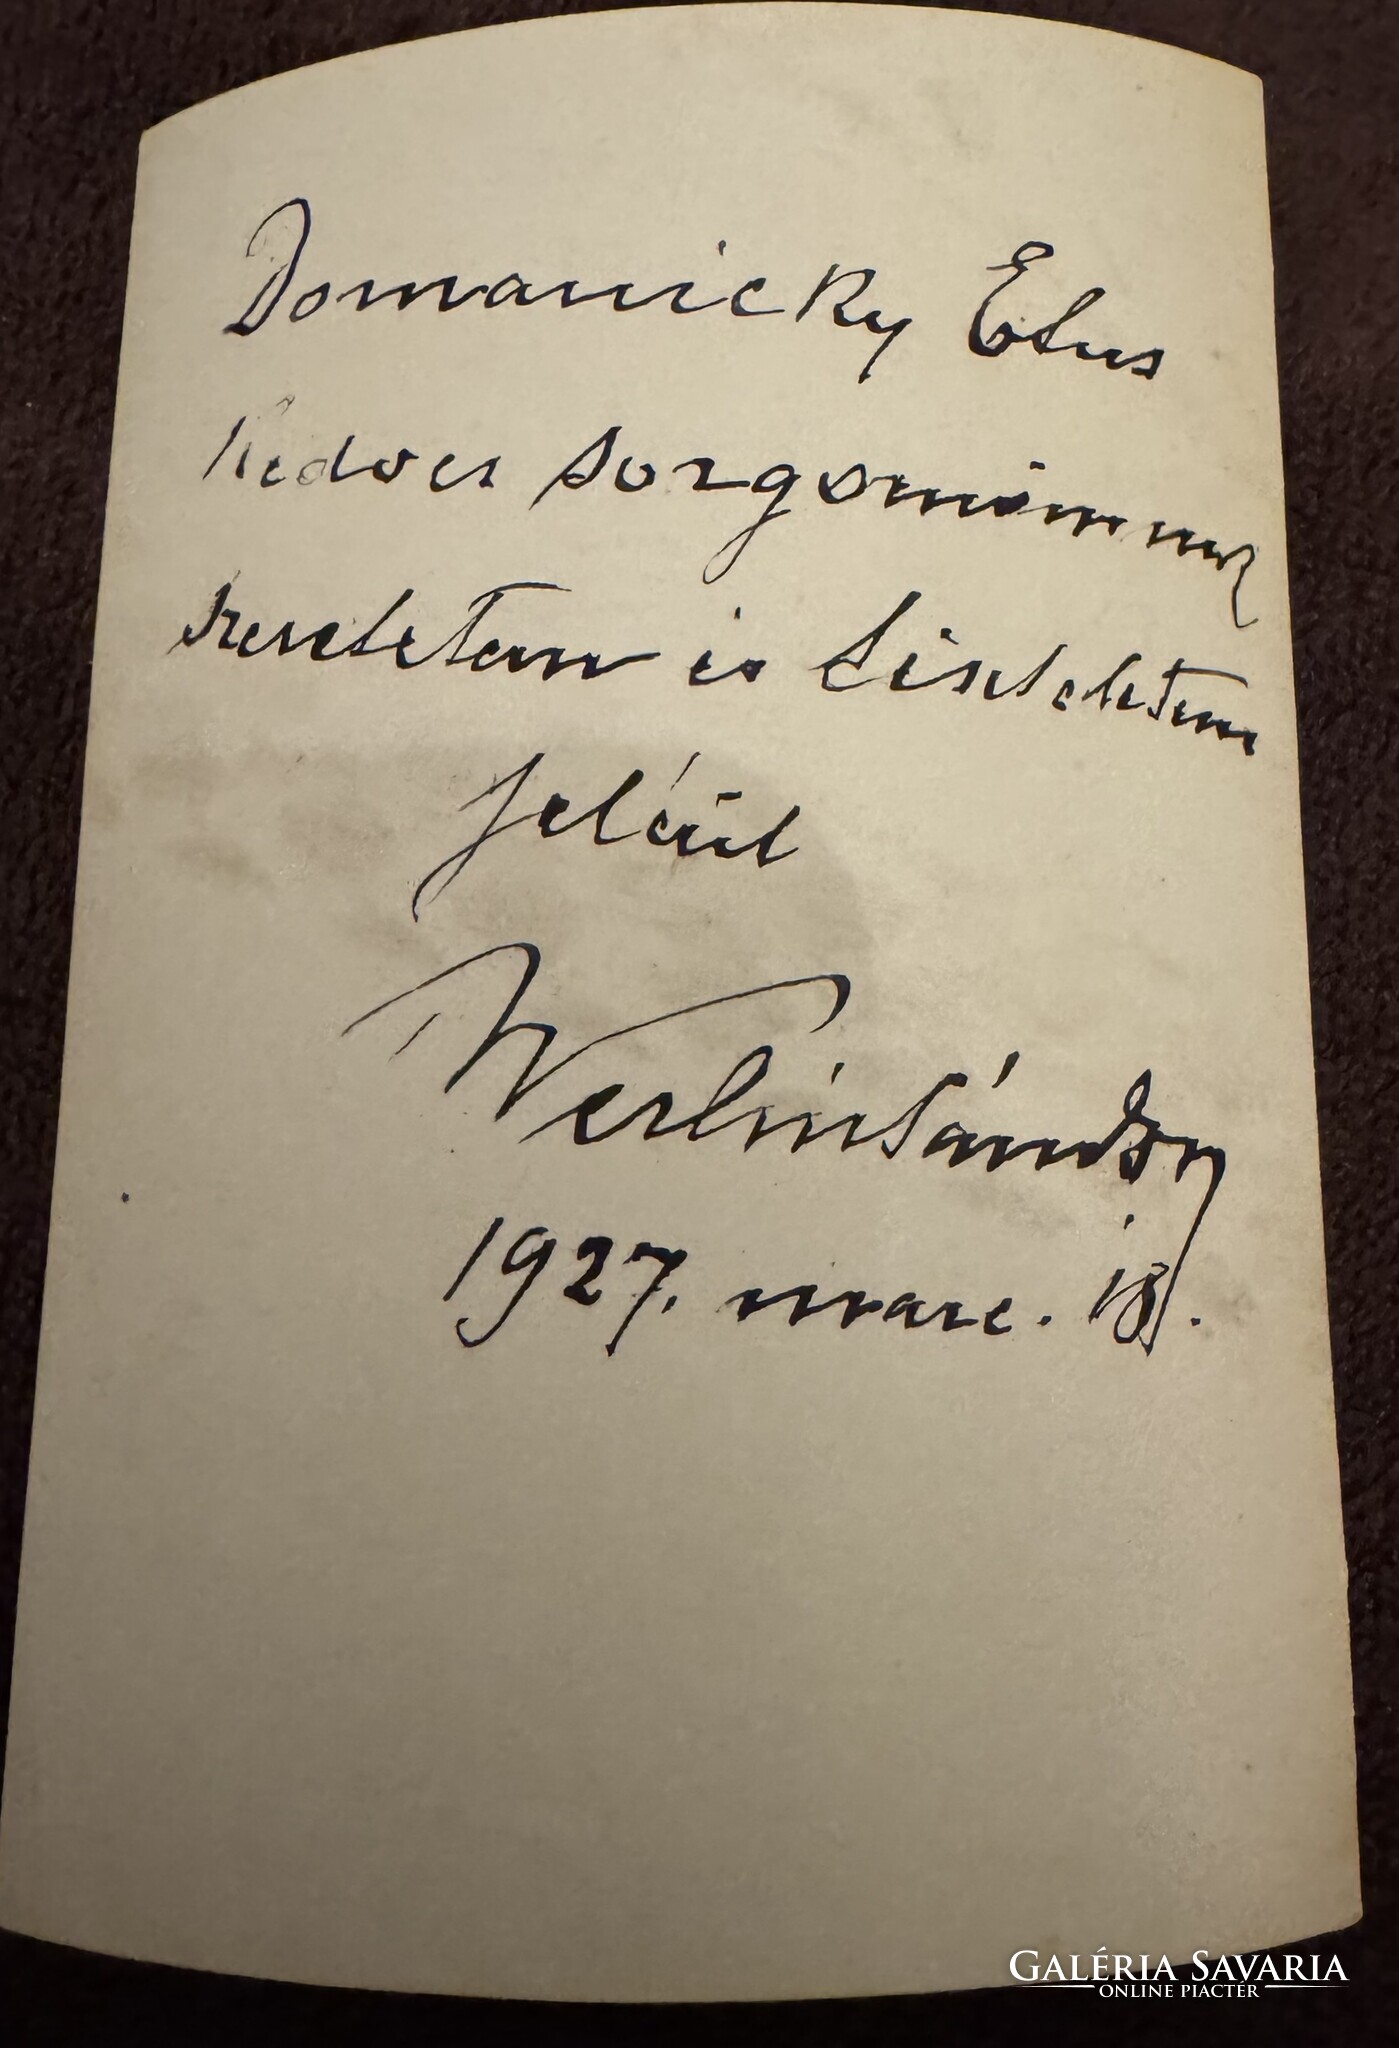 Domanicky Elus
Kedves sorgoninmnek
szeretetem és tiszteletem
jeléül
Werlin Sándor
1927. marc. 18.
GALÉRIA SAVARIA
ONLINE PIACTÉR